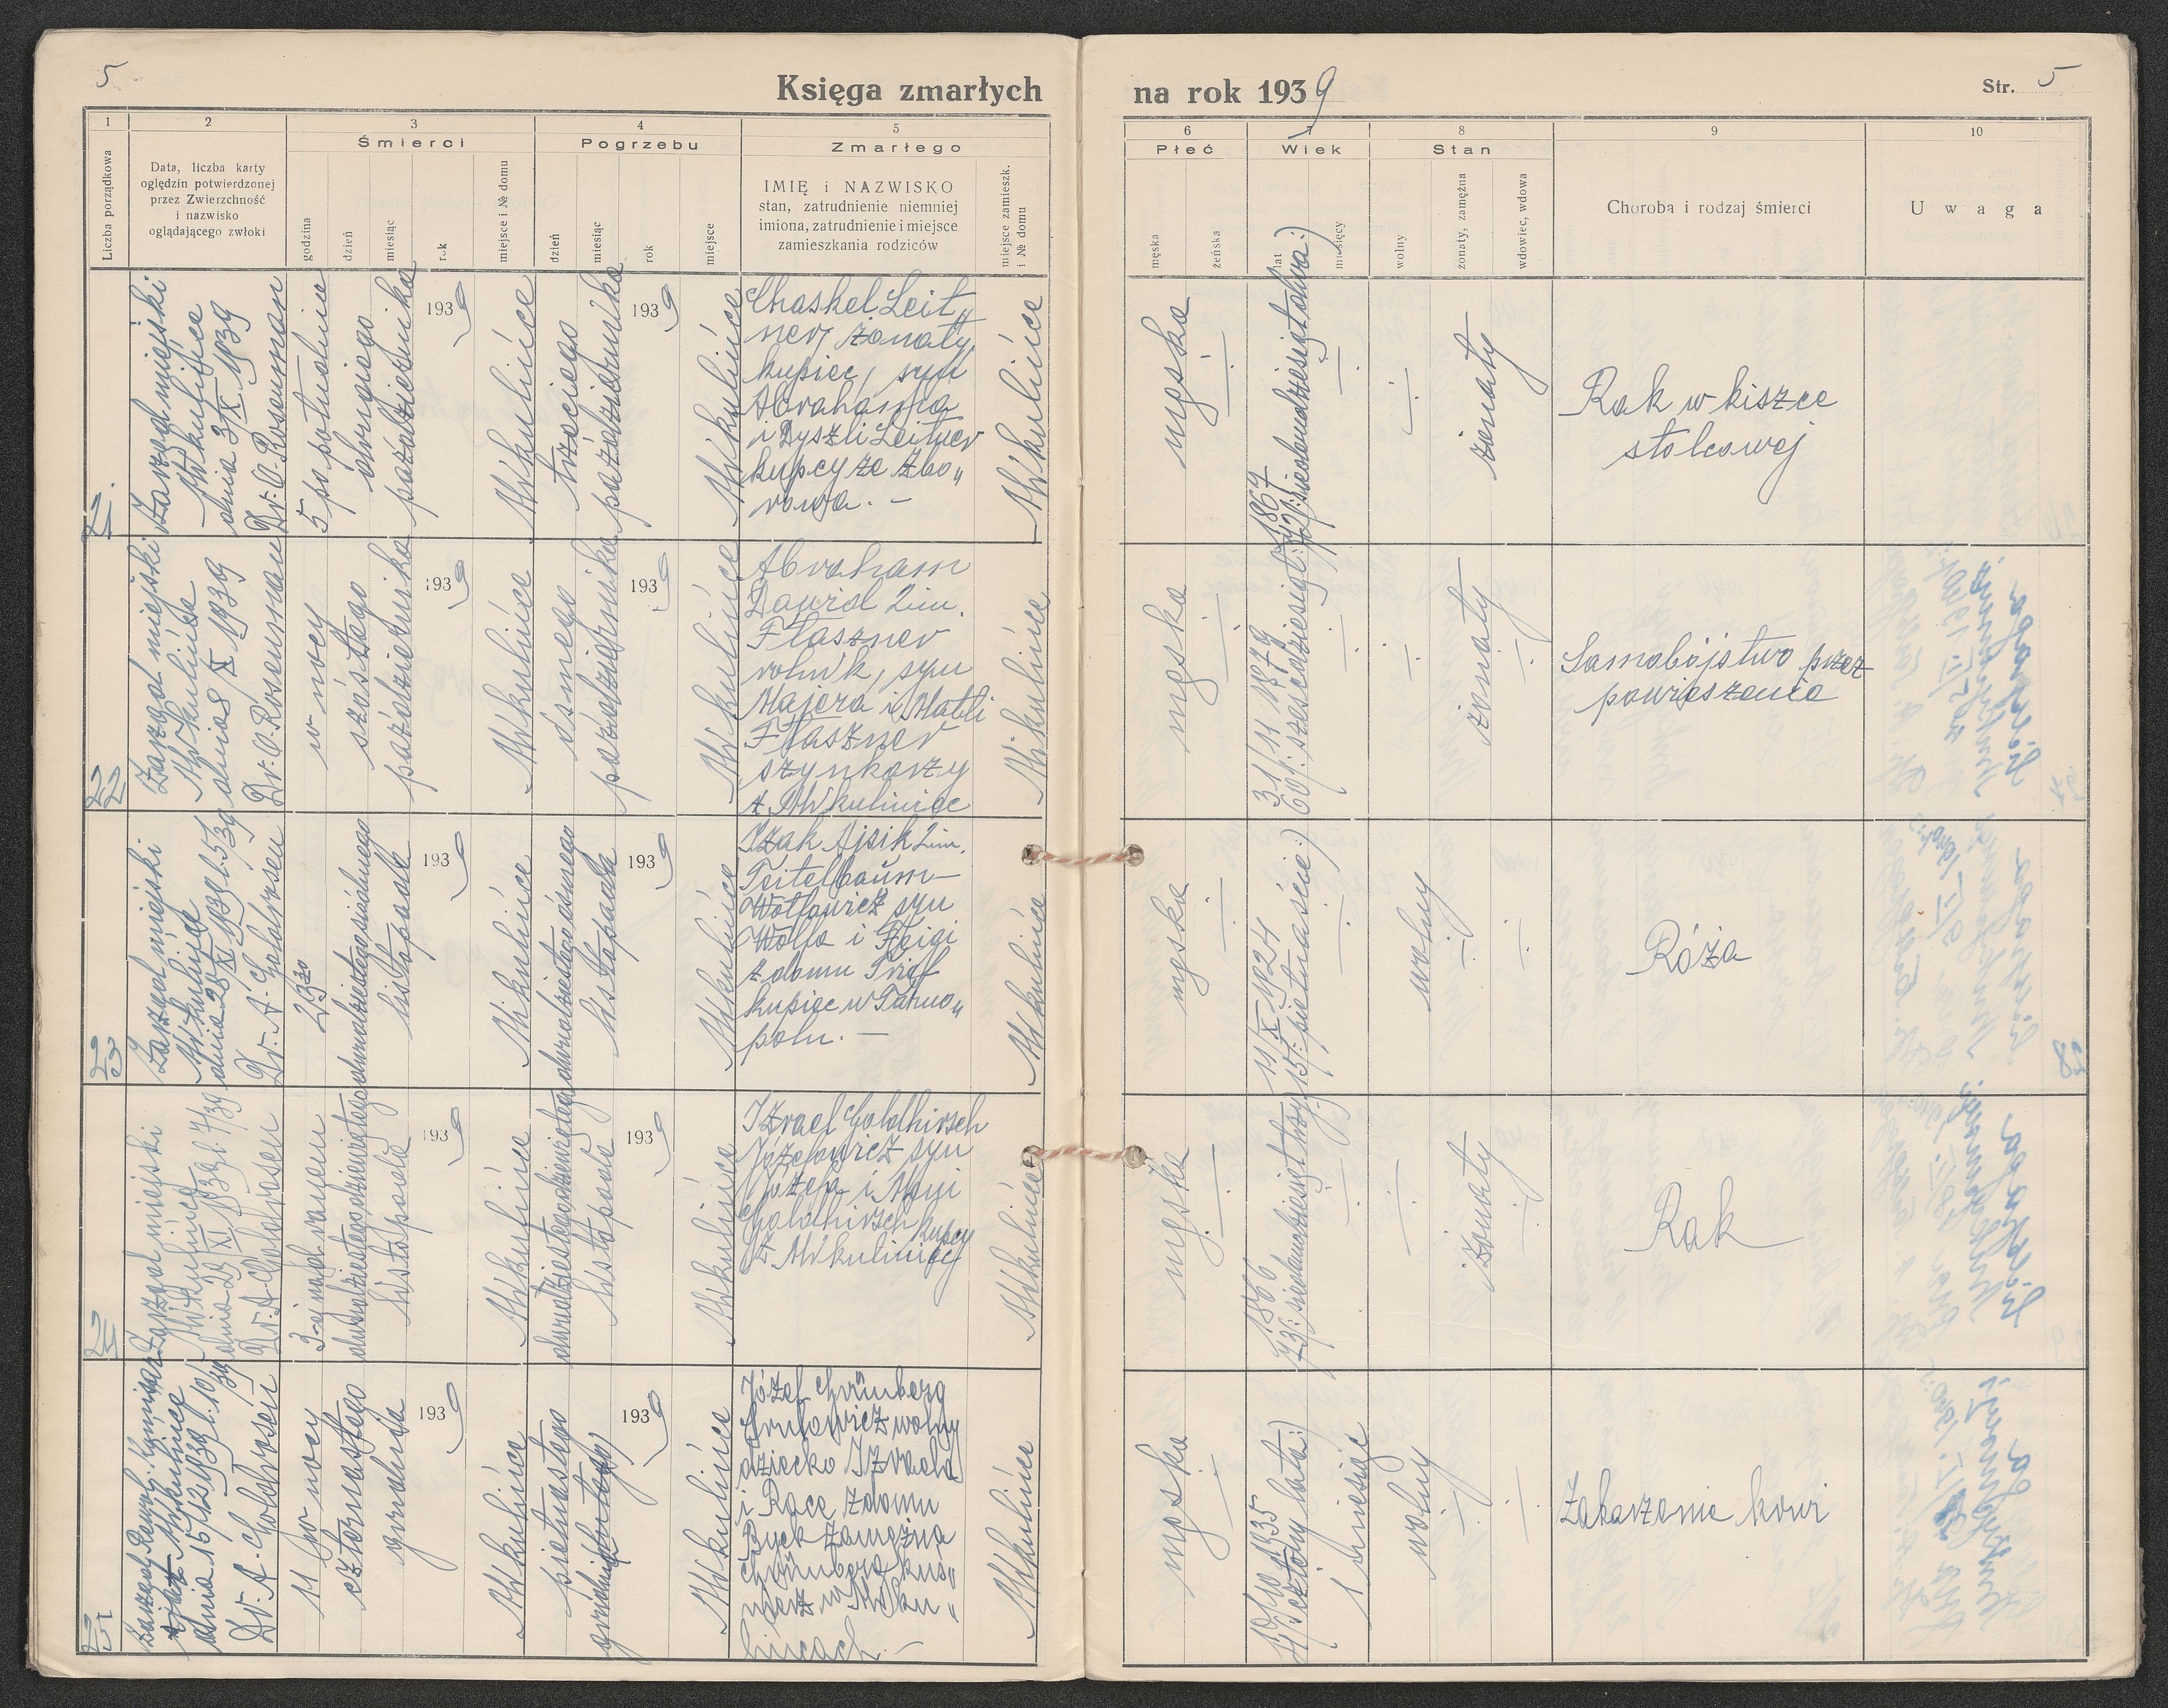 5
Księga zmarłych
na rok 1939
Str. 5
1
2
3
4
5
6
7
8
9
10
Liczba porządkowa
Data, liczba karty
oględzin potwierdzonej
przez Zwierzchność
i nazwisko
oglądającego zwłoki
Śmierci
godzina
dzień
miesiąc
rok
miejsce i № domu
Pogrzebu
dzień
miesiąc
rok
miejsce
Zmarłego
IMIĘ i NAZWISKO
stan, zatrudnienie niemniej
imiona, zatrudnienie i miejsce
zamieszkania rodziców
miejsce zamieszk.
i № domu
Płeć
męska
żeńska
Wiek
lat
miesięcy
Stan
wolny
żonaty, zamężna
wdowiec, wdowa
Choroba i rodzaj śmierci
Uwaga
21.
Zarząd miejski
Mikulińce
dnia 3/X 1939
Dr. O. Rosenman
5 popołudniu
drugiego
października
1939
Mikulińce
trzeciego
października
1939
Mikulińce
Chaskel Leit„
ner, żonaty,
kupiec, syn
Abrahama
i Dyszli Leitner
kupcy ze Zbo„
rowa. –
Mikulińce
męska
1867
72(:siedemdziesiątdwa:)
żonaty
Rak w kiszce
stolcowej
22
Zarząd miejski
Mikulińce
dnia 8/X 1939
Dr. O. Rosenman
w nocy
szóstego
października
1939
Mikulińce
ósmego
października
1939
Mikulińce
Abraham
Dawid 2im.
Flaszner
rolnik, syn
Majera i Matli
Flaszner
szynkarzy
z Mikuliniec
Mikulińce
męska
31/11 1879
60(:sześćdziesiąt:)
żonaty
Samobójstwo przez
powieszenie
23
Zarząd miejski
Mikulińce
dnia 28/XI 1939 l. 5/39
Dr. A. Goldrosen
23³⁰
dwudziestegosiódmego
listopada
1939
Mikulińce
dwudziestegoósmego
listopada
1939
Mikulińce
Izak Ajsik 2im.
Teitelbaum–
Wolfowicz syn
Wolfa i Feigi
z domu Trief
kupiec w Tarno„
polu. –
Mikulińce
męska
11/X 1924
15(:piętnaście:)
wolny
Róża
24
Zarząd miejski
Mikulińce
dnia 29/XI 1939 l. 7/39
Dr. A. Goldrosen
3-ej nad ranem
dwudziestegodziewiątego
listopada
1939
Mikulińce
dwudziestegodziewiątego
listopada
1939
Mikulińce
Izrael Goldhirsch
Józefowicz syn
Józefa i
Goldhirsch kupcy
z Mikuliniec
Mikulińce
męska
1866
73(:siedemdziesiąt trzy:)
żonaty
Rak
25
dnia 15/12 1939 l. 10/39
Dr. A. Goldrosen
11 w nocy
czternastego
grudnia
1939
Mikulińce
piętnastego
grudnia
1939
Mikulińce
Józef Grünberg
Srulowicz wolny
dziecko Izraela
i Race z domu
Byck zamężna
Grünberg kuś„
nierz w Miku„
lińcach. –
Mikulińce
męska
10/10 1935
4(:cztery lata:)
1 miesiąc
wolny
Zakażenie krwi